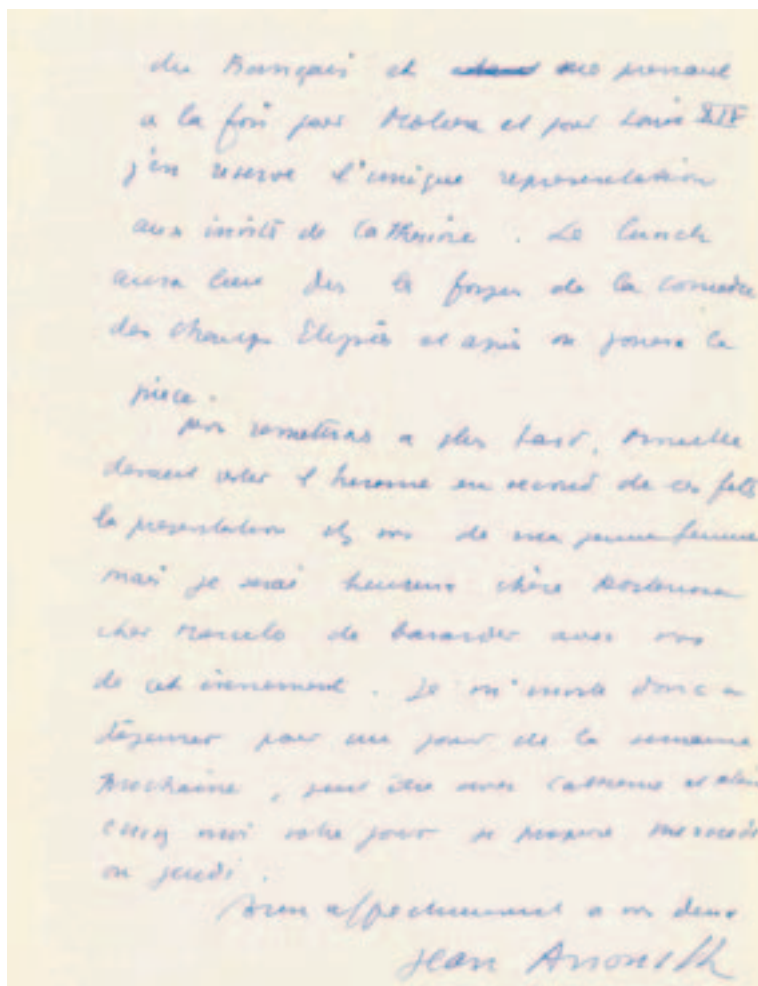 du Français et me prenant
a la fois pour Moliere et pour Louis XIV
j'en reserve l'unique representation
aux invités de Catherine. Le lunch
aura lieu ds le foyer de la comedie
des Champs Elysées et après on jouera la
piece.
remettrons a plus tard,
devant
la presentation de ma jeune femme
mais je serai heureux chère
cher Marcelo de bavarder avec vous
de cet evenement. Je m'invite donc a
dejeuner pour un jour de la semaine
prochaine, peut etre avec Catherine et Alain
moi votre jour je propose mercredi
ou jeudi.
Bien affectueusement a vos deux
Jean Anouilh